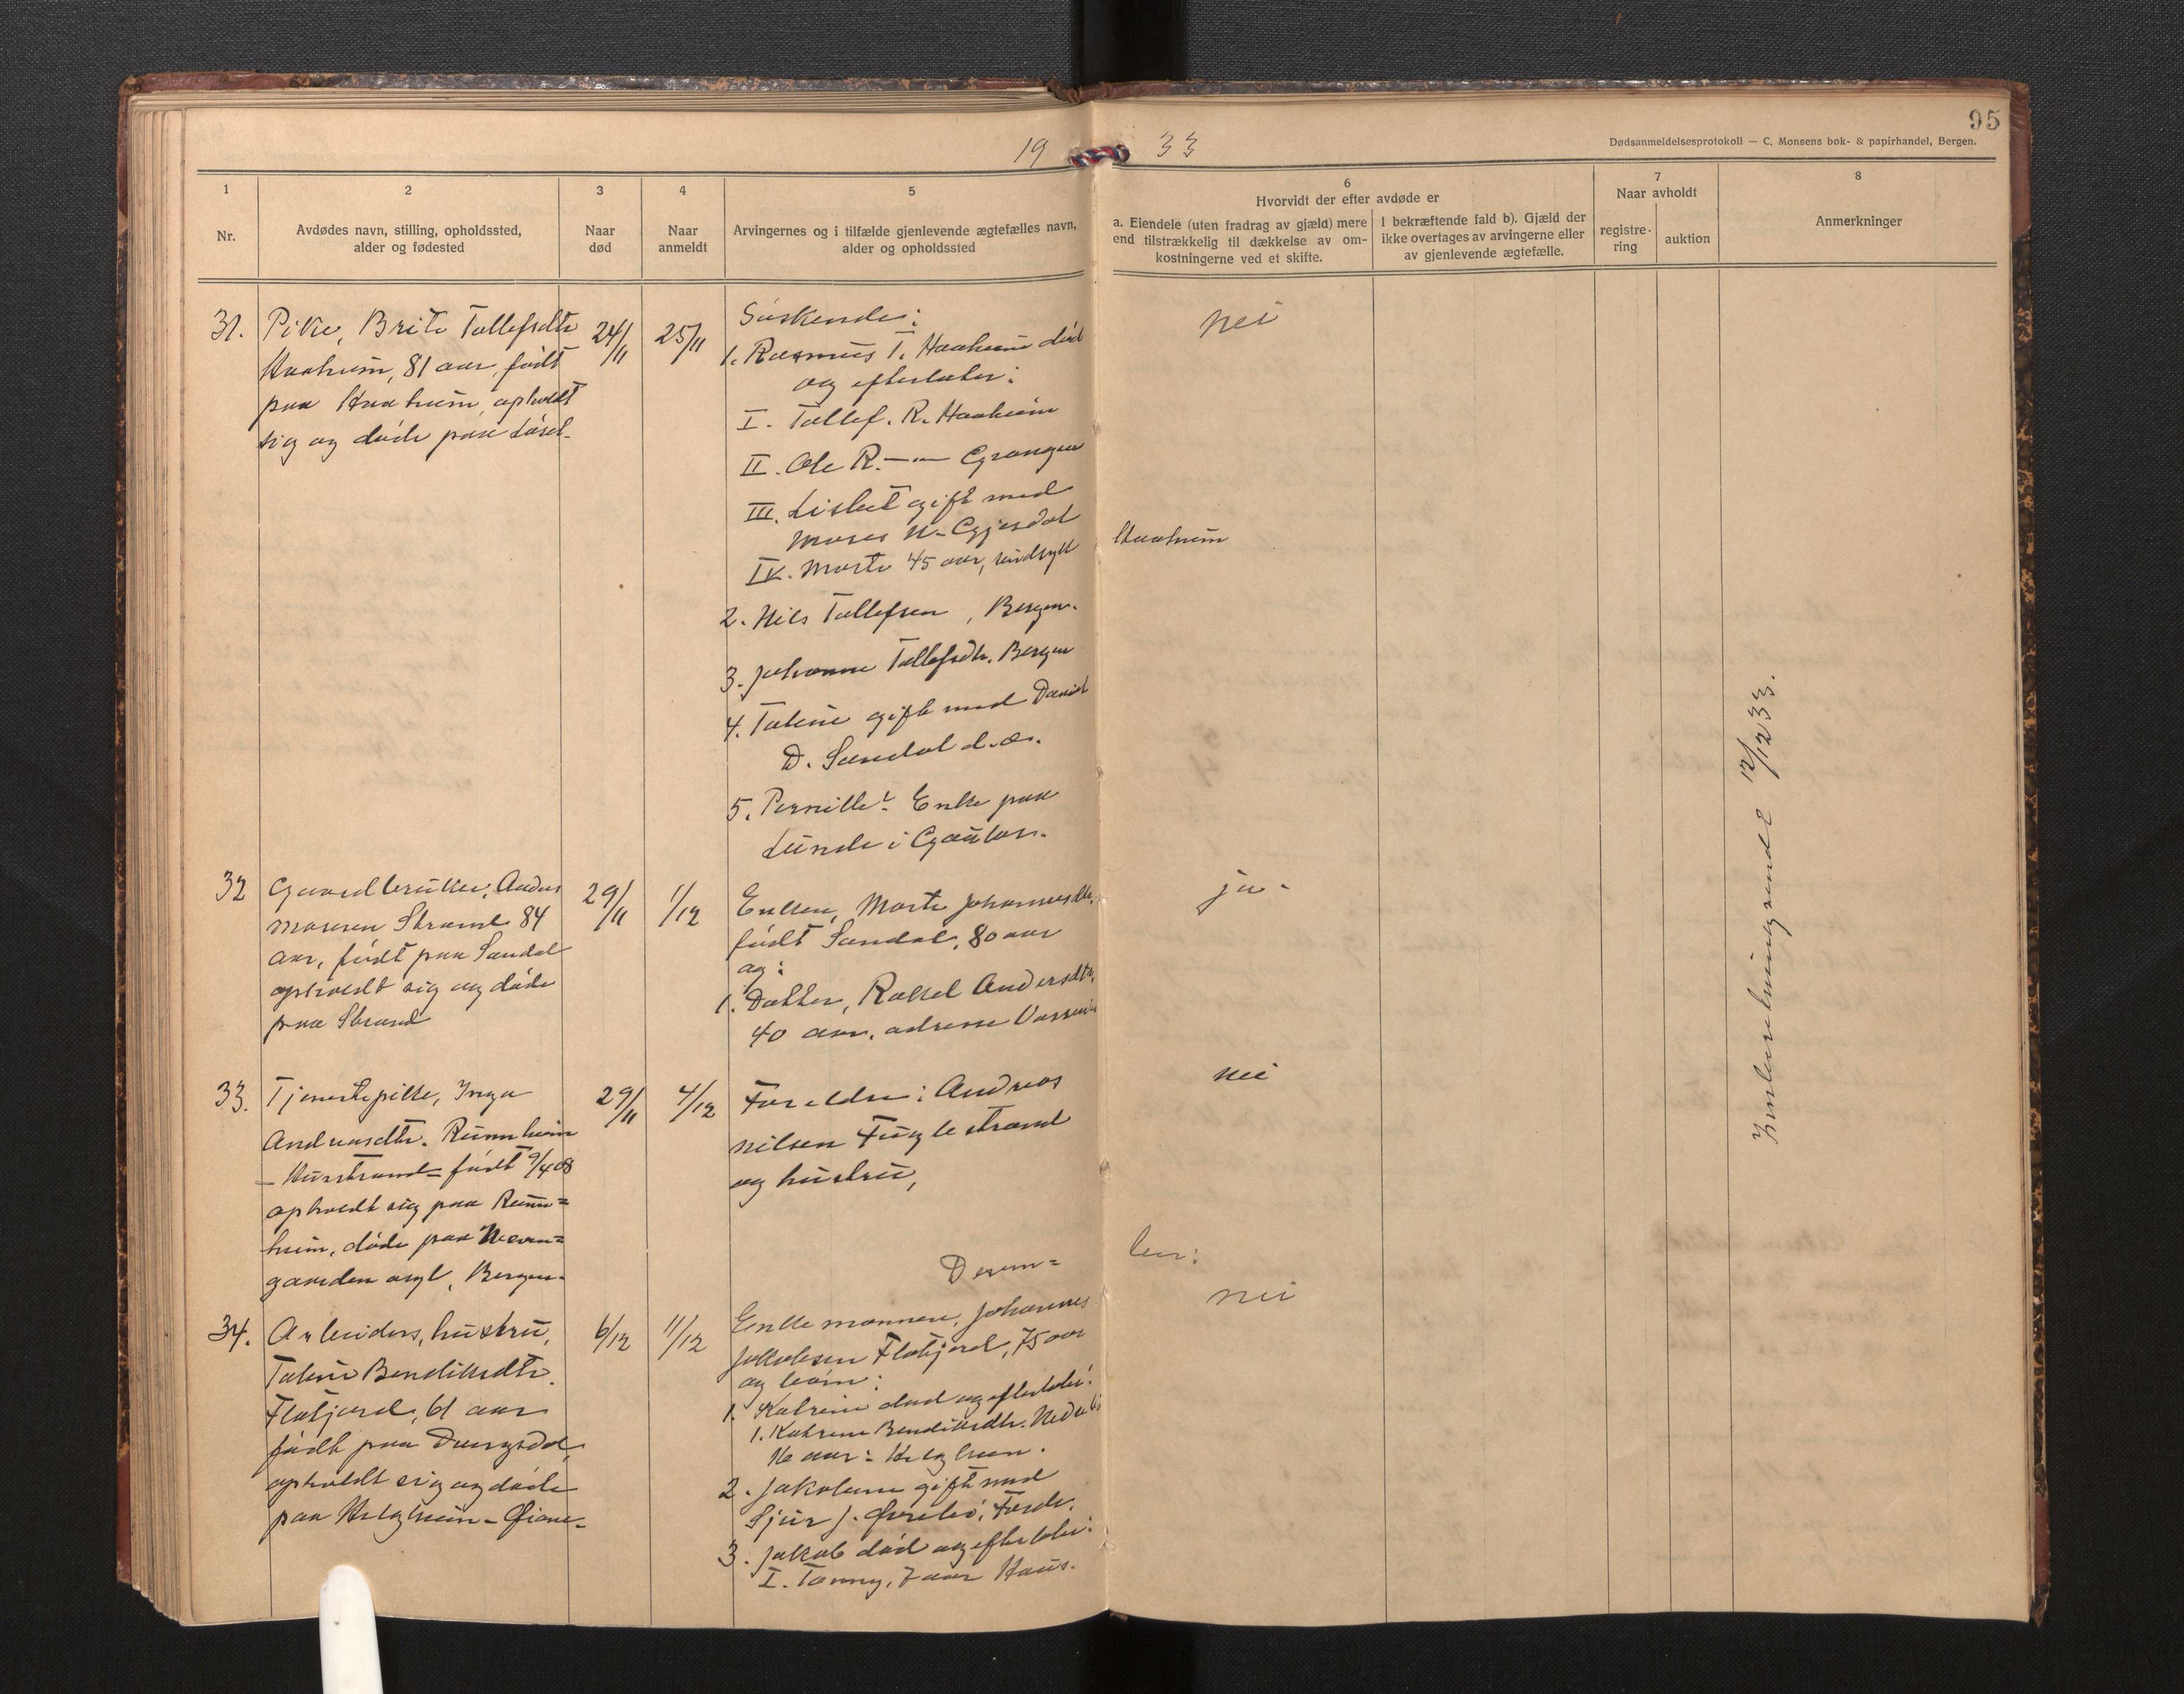 95
19 33
Dødsanmeldelsesprotokoll — C. Monsens bok- & papirhandel, Bergen.
1
Nr.
2
Avdødes navn, stilling, opholdssted,
alder og fødested
3
Naar
død
4
Naar
anmeldt
5
Arvingernes og i tilfælde gjenlevende ægtefælles navn,
alder og opholdssted
6
Hvorvidt der efter avdøde er
a. Eiendele (uten fradrag av gjæld) mere
end tilstrækkelig til dækkelse av om-
kostningerne ved et skifte.
I bekræftende fald b). Gjæld der
ikke overtages av arvingerne eller
av gjenlevende ægtefælle.
7
Naar avholdt
registre-
ring
auktion
8
Anmerkninger
31.
Pike, Brite Tollefsdtr
Haaheim, 81 aar, født
paa Haaheim, opholdt
sig og døde paa
24/11
25/11
Søskende:
1. Rasmus T. Haaheim død
og efterlater:
I. Tollef. R. Haaheim
II. Ole R. —"— Grongen
III. Lisbet gift med
Moses N. Gjesdal
IV. Marte 45 aar, sindsyk
Haaheim
2. Nils Tollefsen, Bergen.
3. Johanne Tollefsdtr. Bergen
4. Taline gift med Daniel
D. Sandal d.æ.
5. Pernille: Enke paa
Lunde i Gaular.
nei
32
Gaardbruker, Anders
Mosesen Strand 84
aar, født paa Sandal
opholdt sig og døde
paa Strand
29/11
1/12
Enken, Marte Johannesdtr.
født Sandal, 80 aar
og:
1. Datter, Rakel Andersdtr,
40 aar, adresse
ja.
33.
Tjenestepike, Inga
Andreasdtr. Runnheim
— født 9/4 08
opholdt sig paa Runn=
heim, døde paa Neven=
gaarden asyl, Bergen.
29/11
4/12
Foreldre: Andreas
Nilsen Fuglestrand
og hustru,
nei
34.
Arbeiders, hustru,
Taline Bendiksdtr.
Flatjord, 61 aar
født paa
opholdt sig og døde
paa Helgheim
6/12
11/12
Enkemannen, Johannes
Jakobsen Flatjord, 75 aar
og børn:
1. Katrine død og efterlater:
1. Katrine Bendiksdtr.
16 aar: Helgheim.
2. Jakobine gift med
Sjur J. Førde.
3. Jakob død og efterlater:
I. Tommy, 7 aar Haus.
nei
12/12 33.